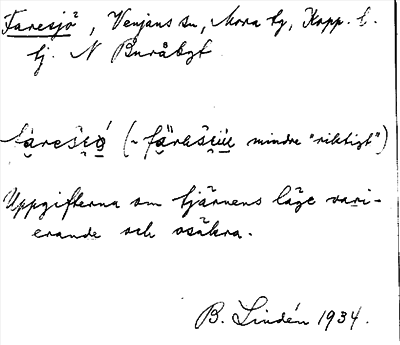 Faresjö, Venjans sn, Mora tg, Kopp. l.
tj. N Buråbyt
färeše̮ö́ (~ fä̀reše̮ùe mindre "riktigt")
Uppgifterna om tjärnens läge vari-
erande och osäkra.
B. Lindén 1934.